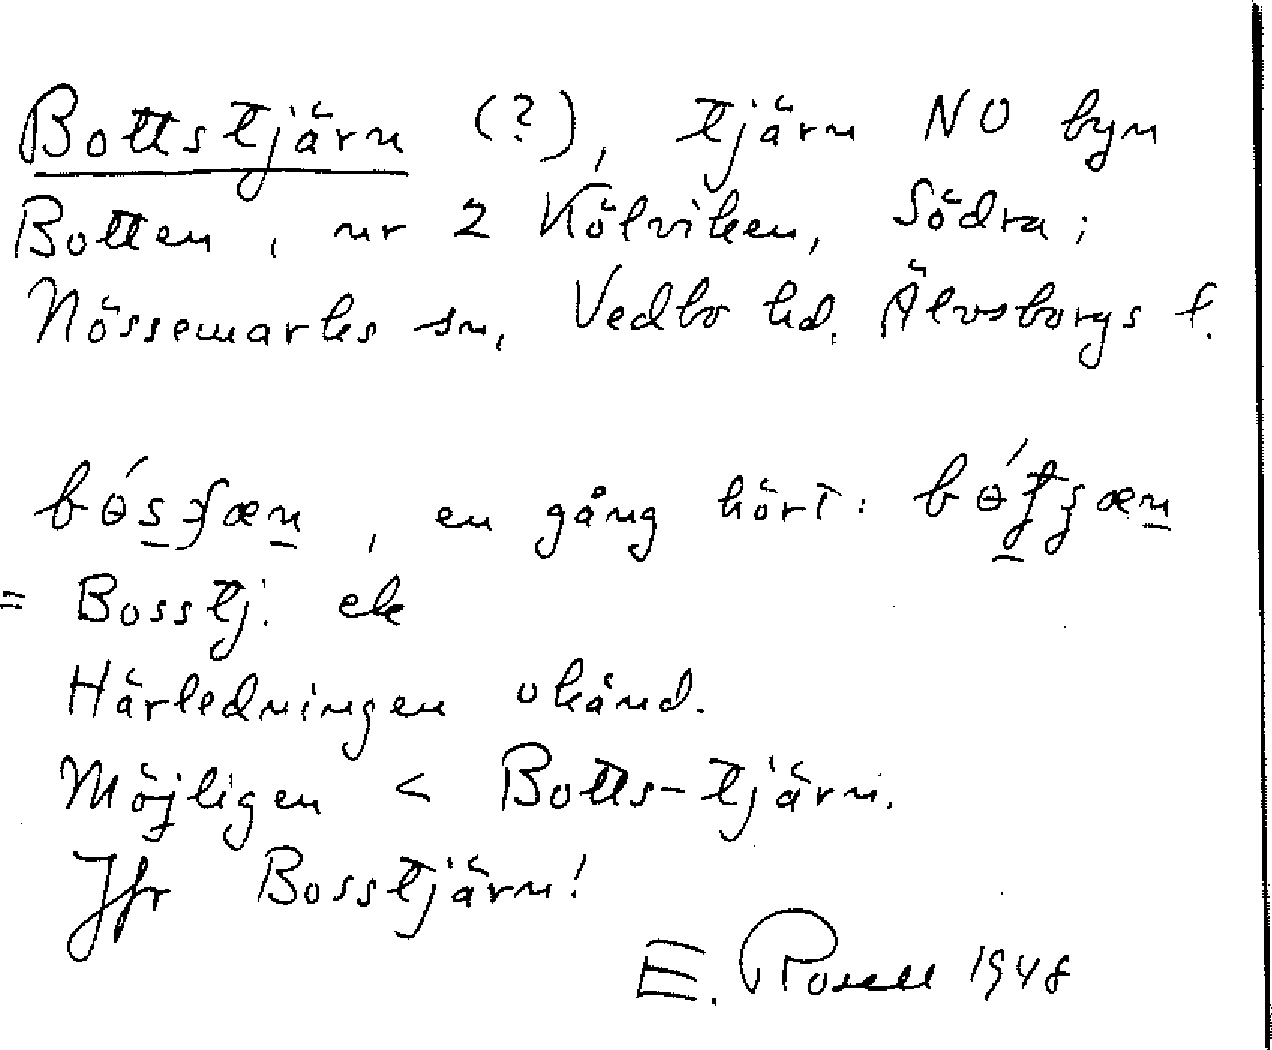 Bottstjärn (?), tjärn NO byn
Botten, nr 2 Kölviken, Södra;
Nössemarks sn, Vedbo hd. Älvsborgs l.
en gång hört:
= Bosstj. ek
Härledningen okänd.
Möjligen < Botts-tjärn.
Jfr Bosstjärn!
E. Rosell 1948